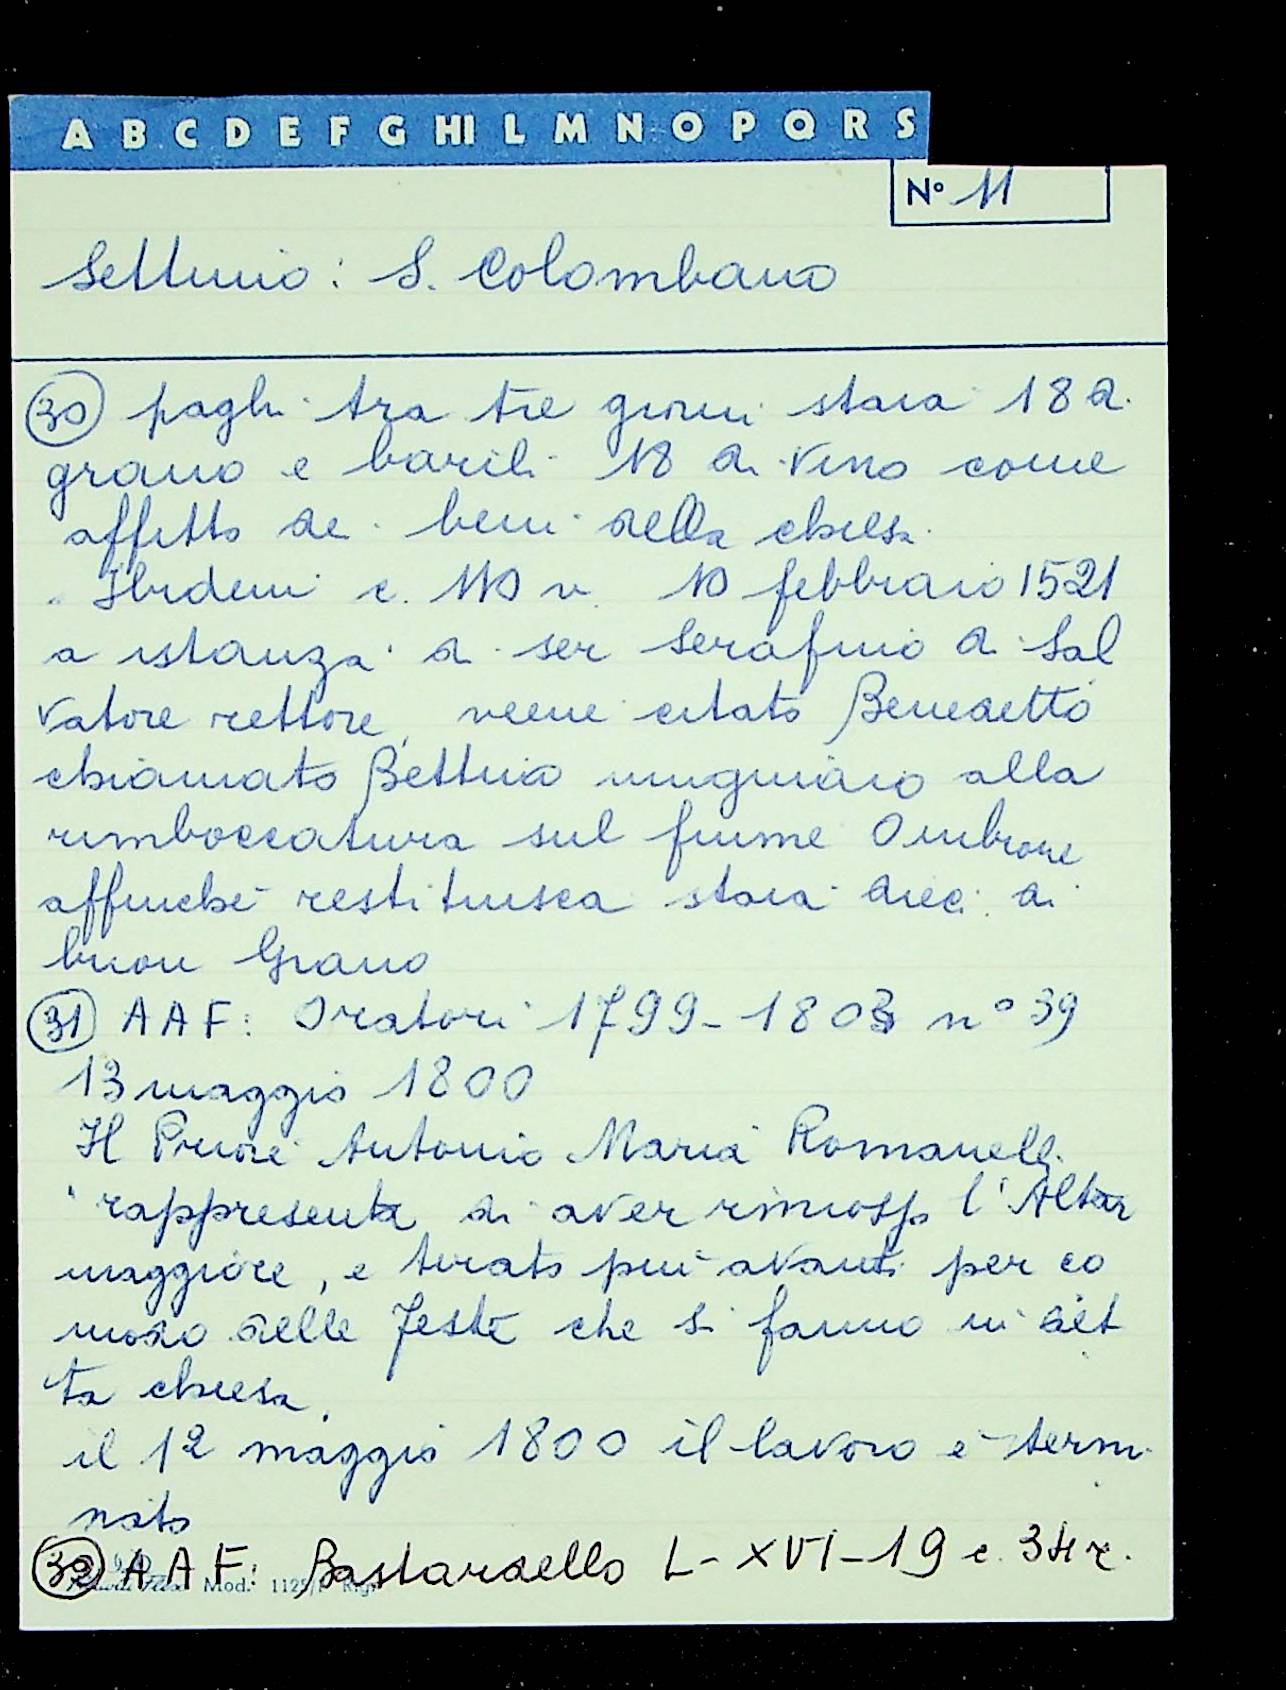 A B C D E F G HI L M N O P Q R S
N° 11
Settimo: S. Colombano
30 paghi tra tre giorni staia 18 di
grano e barili 18 di vino come
affitto dei beni della chiesa.
Ibidem c. 110 v. 10 febbraio 1521
a istanza di ser Serafino di Sal
vatore rettore, viene citato Benedetto
chiamato Bettino mugniaio alla
rimboccatura sul fiume Ombrone
affinché restituisca staia dieci di
buon Grano
31 AAF: Oratori 1799-1803 n° 39
13 maggio 1800
Il Priore Antonio Maria Romanelli
rappresenta di aver rimosso l'Altar
maggiore, e tirato più avanti per co
modo delle Feste che si fanno in det
ta chiesa.
il 12 maggio 1800 il lavoro è termi
nato
32 AAF: Bastardello L-XVI-19 c. 34 r.
Mod. 1125/ Rig.